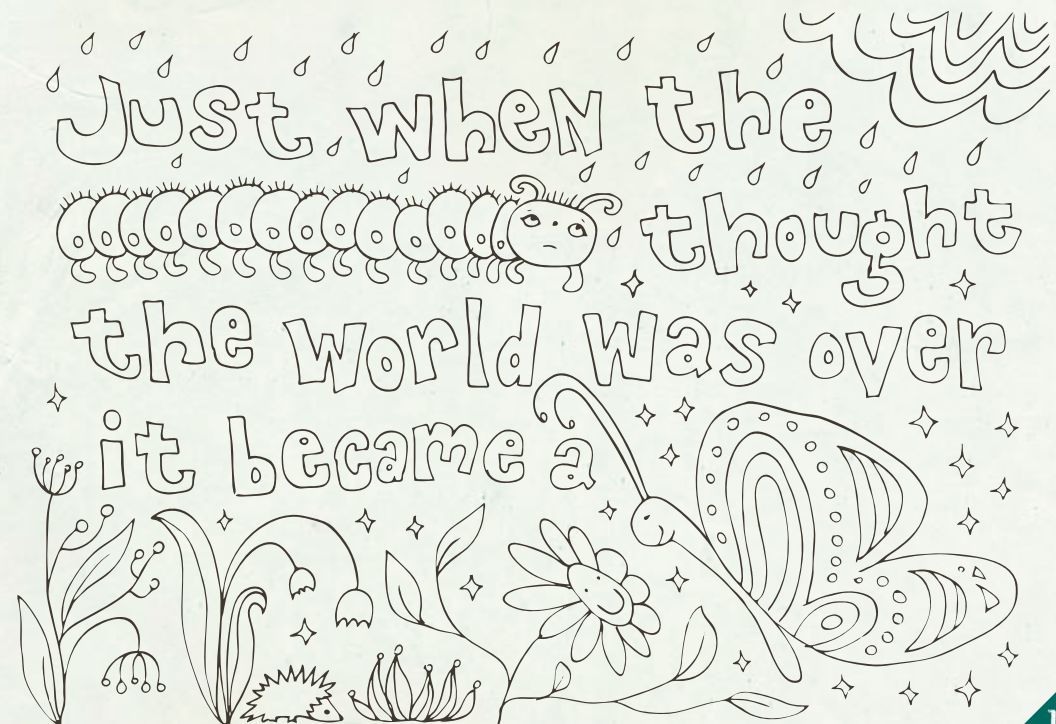 Just when the
thought
the world was over
it became a